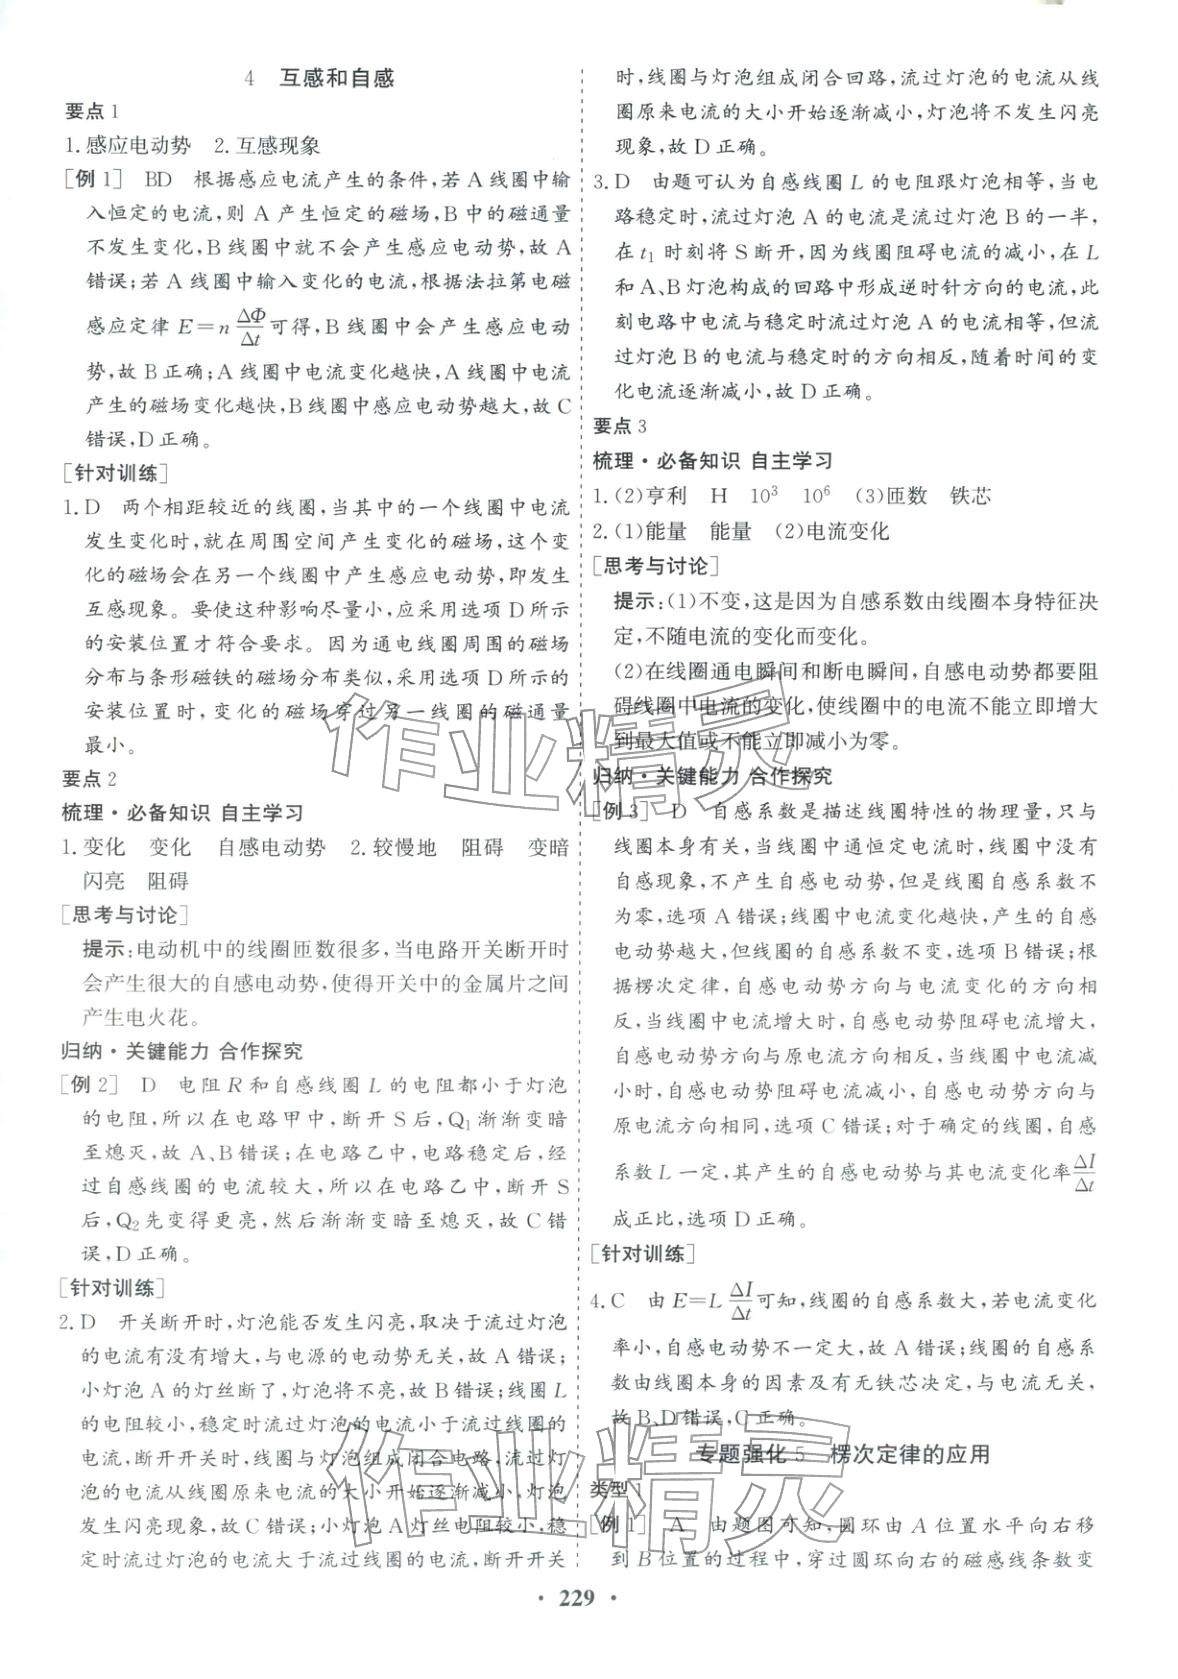 4 互感和自感
要点 1
1.感应电动势 2.互感现象
[例 1] BD 根据感应电流产生的条件,若 A 线圈中输
入恒定的电流,则 A 产生恒定的磁场,B 中的磁通量
不发生变化,B 线圈中就不会产生感应电动势,故 A
错误;若 A 线圈中输入变化的电流,根据法拉第电磁
感应定律 E=n ΔΦ/Δt 可得,B 线圈中会产生感应电动
势,故 B 正确;A 线圈中电流变化越快,A 线圈中电流
产生的磁场变化越快,B 线圈中感应电动势越大,故 C
错误,D 正确。
[针对训练]
1.D 两个相距较近的线圈,当其中的一个线圈中电流
发生变化时,就在周围空间产生变化的磁场,这个变
化的磁场会在另一个线圈中产生感应电动势,即发生
互感现象。要使这种影响尽量小,应采用选项 D 所示
的安装位置才符合要求。因为通电线圈周围的磁场
分布与条形磁铁的磁场分布类似,采用选项 D 所示的
安装位置时,变化的磁场穿过另一线圈的磁通量
最小。
要点 2
梳理·必备知识 自主学习
1.变化 变化 自感电动势 2.较慢地 阻碍 变暗
闪亮 阻碍
[思考与讨论]
提示:电动机中的线圈匝数很多,当电路开关断开时
会产生很大的自感电动势,使得开关中的金属片之间
产生电火花。
归纳·关键能力 合作探究
[例 2] D 电阻 R 和自感线圈 L 的电阻都小于灯泡
的电阻,所以在电路甲中,断开 S 后,Q₁ 渐渐变暗
至熄灭,故 A、B 错误;在电路乙中,电路稳定后,经
过自感线圈的电流较大,所以在电路乙中,断开 S
后,Q₂ 先变得更亮,然后渐渐变暗至熄灭,故 C 错
误,D 正确。
[针对训练]
2.D 开关断开时,灯泡能否发生闪亮,取决于流过灯泡
的电流有没有增大,与电源的电动势无关,故 A 错误;
小灯泡 A 的灯丝断了,灯泡将不亮,故 B 错误;线圈 L
的电阻较小,稳定时流过灯泡的电流小于流过线圈的
电流,断开开关时,线圈与灯泡组成闭合电路,流过灯
泡的电流从线圈原来电流的大小开始逐渐减小,灯泡
发生闪亮现象,故 C 错误;小灯泡 A 灯丝电阻较小,稳
定时流过灯泡的电流大于流过线圈的电流,断开开关
时,线圈与灯泡组成闭合回路,流过灯泡的电流从线
圈原来电流的大小开始逐渐减小,灯泡将不发生闪亮
现象,故 D 正确。
3.D 由题可认为自感线圈 L 的电阻跟灯泡相等,当电
路稳定时,流过灯泡 A 的电流是流过灯泡 B 的一半,
在 t₁ 时刻将 S 断开,因为线圈阻碍电流的减小,在 L
和 A、B 灯泡构成的回路中形成逆时针方向的电流,此
刻电路中电流与稳定时流过灯泡 A 的电流相等,但流
过灯泡 B 的电流与稳定时的方向相反,随着时间的变
化电流逐渐减小,故 D 正确。
要点 3
梳理·必备知识 自主学习
1.(2)亨利 H 10³ 10⁶ (3)匝数 铁芯
2.(1)能量 能量 (2)电流变化
[思考与讨论]
提示:(1)不变,这是因为自感系数由线圈本身特征决
定,不随电流的变化而变化。
(2)在线圈通电瞬间和断电瞬间,自感电动势都要阻
碍线圈中电流的变化,使线圈中的电流不能立即增大
到最大值或不能立即减小为零。
归纳·关键能力 合作探究
[例 3] D 自感系数是描述线圈特性的物理量,只与
线圈本身有关,当线圈中通恒定电流时,线圈中没有
自感现象,不产生自感电动势,但是线圈自感系数不
为零,选项 A 错误;线圈中电流变化越快,产生的自感
电动势越大,但线圈的自感系数不变,选项 B 错误;根
据楞次定律,自感电动势方向与电流变化的方向相
反,当线圈中电流增大时,自感电动势阻碍电流增大,
自感电动势方向与原电流方向相反,当线圈中电流减
小时,自感电动势阻碍电流减小,自感电动势方向与
原电流方向相同,选项 C 错误;对于确定的线圈,自感
系数 L 一定,其产生的自感电动势与其电流变化率 ΔI/Δt
成正比,选项 D 正确。
[针对训练]
4.C 由 E=L ΔI/Δt 可知,线圈的自感系数大,若电流变化
率小,自感电动势不一定大,故 A 错误;线圈的自感系
数由线圈本身的因素及有无铁芯决定,与电流无关,
故 B、D 错误,C 正确。
专题强化 5 楞次定律的应用
类型 1
[例 1] A 由题图可知,圆环由 A 位置水平向右移
到 B 位置的过程中,穿过圆环向右的磁感线条数变
· 229 ·
作业精灵
作业精灵